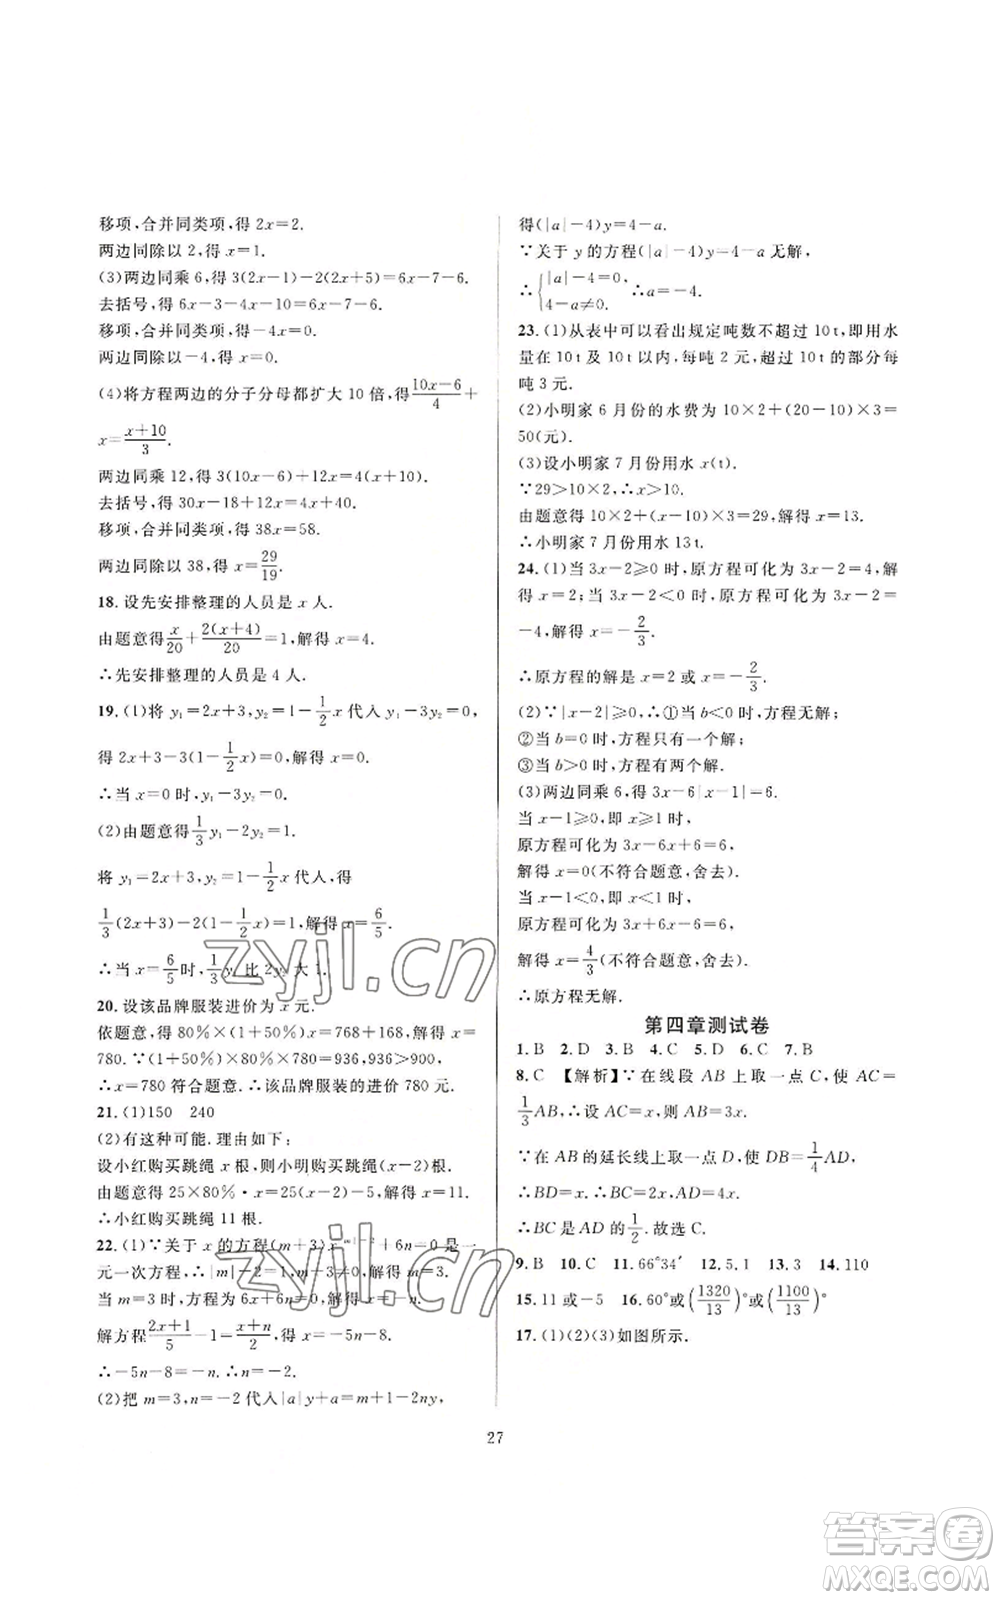 移项,合并同类项,得 2x=2.
两边同除以 2,得 x=1.
(3)两边同乘 6,得 3(2x-1)-2(2x+5)=6x-7-6.
去括号,得 6x-3-4x-10=6x-7-6.
移项,合并同类项,得-4x=0.
两边同除以-4,得 x=0.
(4)将方程两边的分子分母都扩大 10 倍,得 (10x-6)/4+
x=(x+10)/3.
两边同乘 12,得 3(10x-6)+12x=4(x+10).
去括号,得 30x-18+12x=4x+40.
移项,合并同类项,得 38x=58.
两边同除以 38,得 x=29/19.
18. 设先安排整理的人员是 x 人.
由题意得 x/20+2(x+4)/20=1,解得 x=4.
∴先安排整理的人员是 4 人.
19. (1)将 y₁=2x+3,y₂=1-1/2x 代入 y₁-3y₂=0,
得 2x+3-3(1-1/2x)=0,解得 x=0.
∴当 x=0 时,y₁-3y₂=0.
(2)由题意得 1/3y₁-2y₂=1.
将 y₁=2x+3,y₂=1-1/2x 代人,得
1/3(2x+3)-2(1-1/2x)=1,解得 x=6/5.
∴当 x=6/5时,1/3y₁ 比 2y₂ 大 1.
20. 设该品牌服装进价为 x 元.
依题意,得 80%×(1+50%)x=768+168,解得 x=
780. ∵(1+50%)×780×80%=936,936>768,
∴x=780 符合题意.∴该品牌服装的进价 780 元.
21. (1)150 240
(2)有这种可能. 理由如下:
设小红购买跳绳 x 根,则小明购买跳绳(x-2)根.
由题意得 25×80%·x=25(x-2)-5,解得 x=11.
∴小红购买跳绳 11 根.
22. (1)∵关于 x 的方程(m+3)x^(|m|-2)+6n=0 是一
元一次方程,∴|m|-2=1,且 m+3≠0,∴m=3.
当 m=3 时,方程为 6x+6n=0,解得 x=-n.
解方程(2x+1)/5-1=(x+n)/2,得 x=-5n-8.
∴-5n-8=-n. ∴n=-2.
(2)把 m=3,n=-2 代入|a|y+a=am+1-2ny,
得(|a|-4)y=4-a.
∵关于 y 的方程(|a|-4)y=4-a 无解,
∴{|a|-4=0, 4-a≠0. ∴a=-4.
23. (1)从表中可以看出规定吨数不超过 10 t,即用水
量在 10 t 及 10 t 以内,每吨 2 元,超过 10 t 的部分每
吨 3 元.
(2)小明家 6 月份的水费为 10×2+(20-10)×3=
50(元).
(3)设小明家 7 月份用水 x(t).
∵29>10×2,∴x>10.
由题意得 10×2+(x-10)×3=29,解得 x=13.
∴小明家 7 月份用水 13 t.
24. (1)当 3x-2≥0 时,原方程可化为 3x-2=4,解
得 x=2;当 3x-2<0 时,原方程可化为 3x-2=
-4,解得 x=-2/3.
∴原方程的解是 x=2 或 x=-2/3.
(2)∵|x-2|≥0,∴①当 b<0 时,方程无解;
②当 b=0 时,方程只有一个解;
③当 b>0 时,方程有两个解.
(3)两边同乘 6,得 3x-6|x-1|=6.
当 x-1≥0,即 x≥1 时,
原方程可化为 3x-6x+6=6,
解得 x=0(不符合题意,舍去).
当 x-1<0,即 x<1 时,
原方程可化为 3x+6x-6=6,
解得 x=4/3(不符合题意,舍去).
∴原方程无解.
第四章测试卷
1. B 2. D 3. B 4. C 5. D 6. C 7. B
8. C 【解析】∵在线段 AB 上取一点 C,使 AC=
1/3AB,∴设 AC=x,则 AB=3x.
∵在 AB 的延长线上取一点 D,使 DB=1/4AD,
∴BD=x. ∴BC=2x,AD=4x.
∴BC 是 AD 的1/2. 故选 C.
9. B 10. C 11. 66°34′ 12. 5.1 13. 3 14. 110
15. 11 或-5 16. 60°或(1320/13)°或(1100/13)°
17. (1)(2)(3)如图所示.
27
zyjl.cn
zyjl.cn
答案卷
MXQE.COM